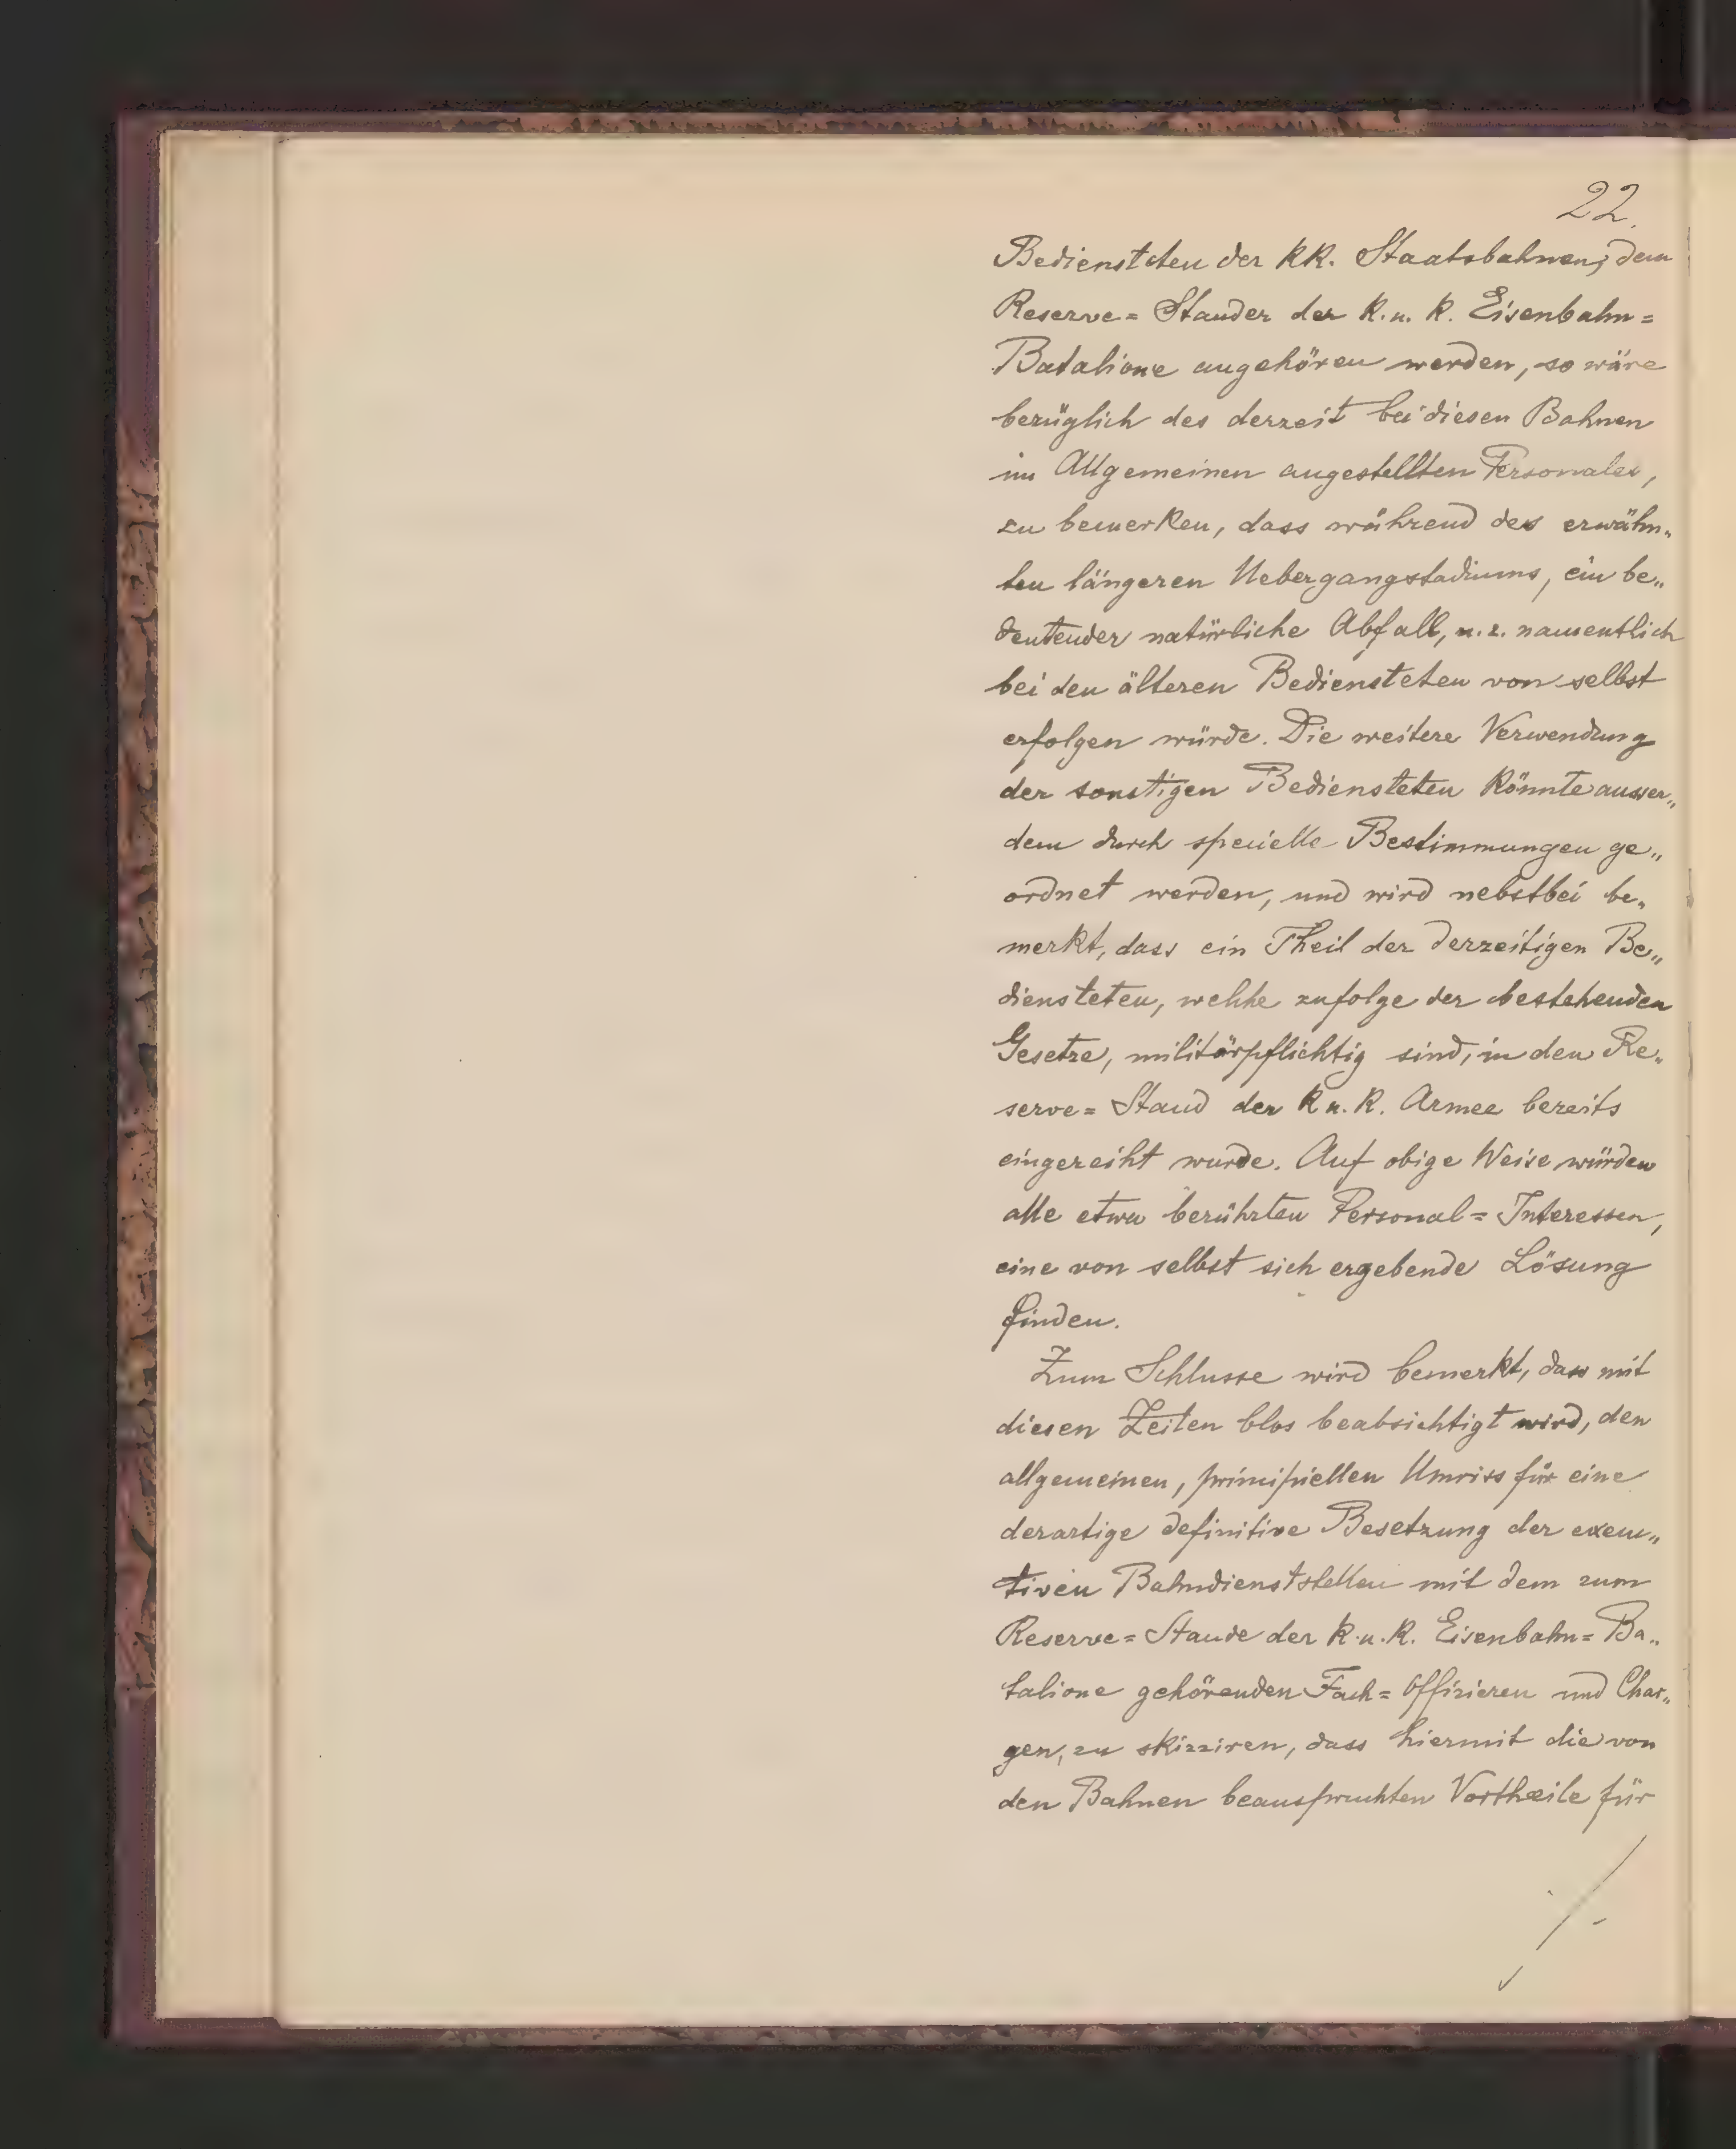 22.
Bediensteten der kk. Staatsbahnen, dem
Reserve= Stander der k.u.k. Eisenbahn=
Batalione angehören werden, so wäre
bezüglich des derzeit bei diesen Bahnen
im Allgemeinen angestellten Personales,
zu bemerken, dass während des erwähn„
ten längeren Uebergangstadiums, ein be„
deutender natürliche Abfall, u.z. namentlich
bei den älteren Bediensteten von selbst
erfolgen würde. Die weitere Verwendung
der sonstigen Bediensteten könnte ausser„
dem durch specielle Bestimmungen ge„
ordnet werden, und wird nebstbei be„
merkt, dass ein Theil der derzeitigen Be„
diensteten, welche zufolge der bestehenden
Gesetze, militärpflichtig sind, in den Re„
serve= Stand der k u. k. Armee bereits
eingereiht wurde. Auf obige Weise würden
alle etwa berührten Personal= Interessen,
eine von selbst sich ergebende Lösung
finden.
Zum Schlusse wird bemerkt, dass mit
diesen Zeilen blos beabsichtigt wird, den
allgemeinen, principiellen Umriss für eine
derartige definitive Besetzung der execu„
tiven Bahndienststellen mit dem zum
Reserve= Stande der k.u.k. Eisenbahn= Ba„
talione gehörenden Fach= Offizieren und Char„
gen, zu skizziren, dass hiermit die von
den Bahnen beanspruchten Vortheile für
./.